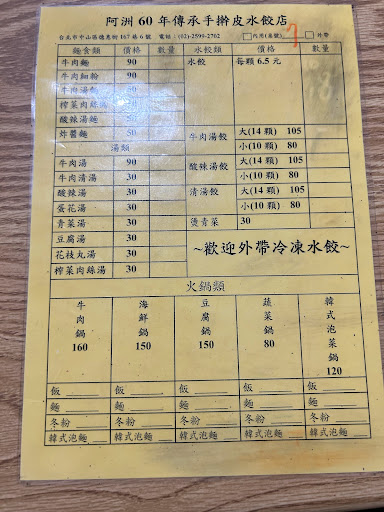 阿洲 60 年傳承手擀皮水餃店
台北市中山區德惠街 167 巷 6 號 電話：(02)-2599-2762 內用(桌號) 7 外帶
麵食類 價格 數量 水餃類 價格 數量
牛肉麵 90 水餃 每顆 6.5 元
牛肉細粉 90
牛肉湯麵
榨菜肉絲麵
酸辣湯麵
炸醬麵 50
牛肉湯餃 大(14 顆) 105
小(10 顆) 80
湯類
牛肉湯 90
酸辣湯餃 大(14 顆) 105
小(10 顆) 80
牛肉清湯 30
酸辣湯 30
清湯餃 大(14 顆) 105
小(10 顆) 80
蛋花湯 30
青菜湯 30
燙青菜 30
豆腐湯 30
花枝丸湯 30
榨菜肉絲湯 30
~歡迎外帶冷凍水餃~
火鍋類
牛肉鍋 160
海鮮鍋 150
豆腐鍋 150
蔬菜鍋 80
韓式泡菜鍋 120
飯 飯 飯 飯 飯
麵 麵 麵 麵 麵
冬粉 冬粉 冬粉 冬粉 冬粉
韓式泡麵 韓式泡麵 韓式泡麵 韓式泡麵 韓式泡麵